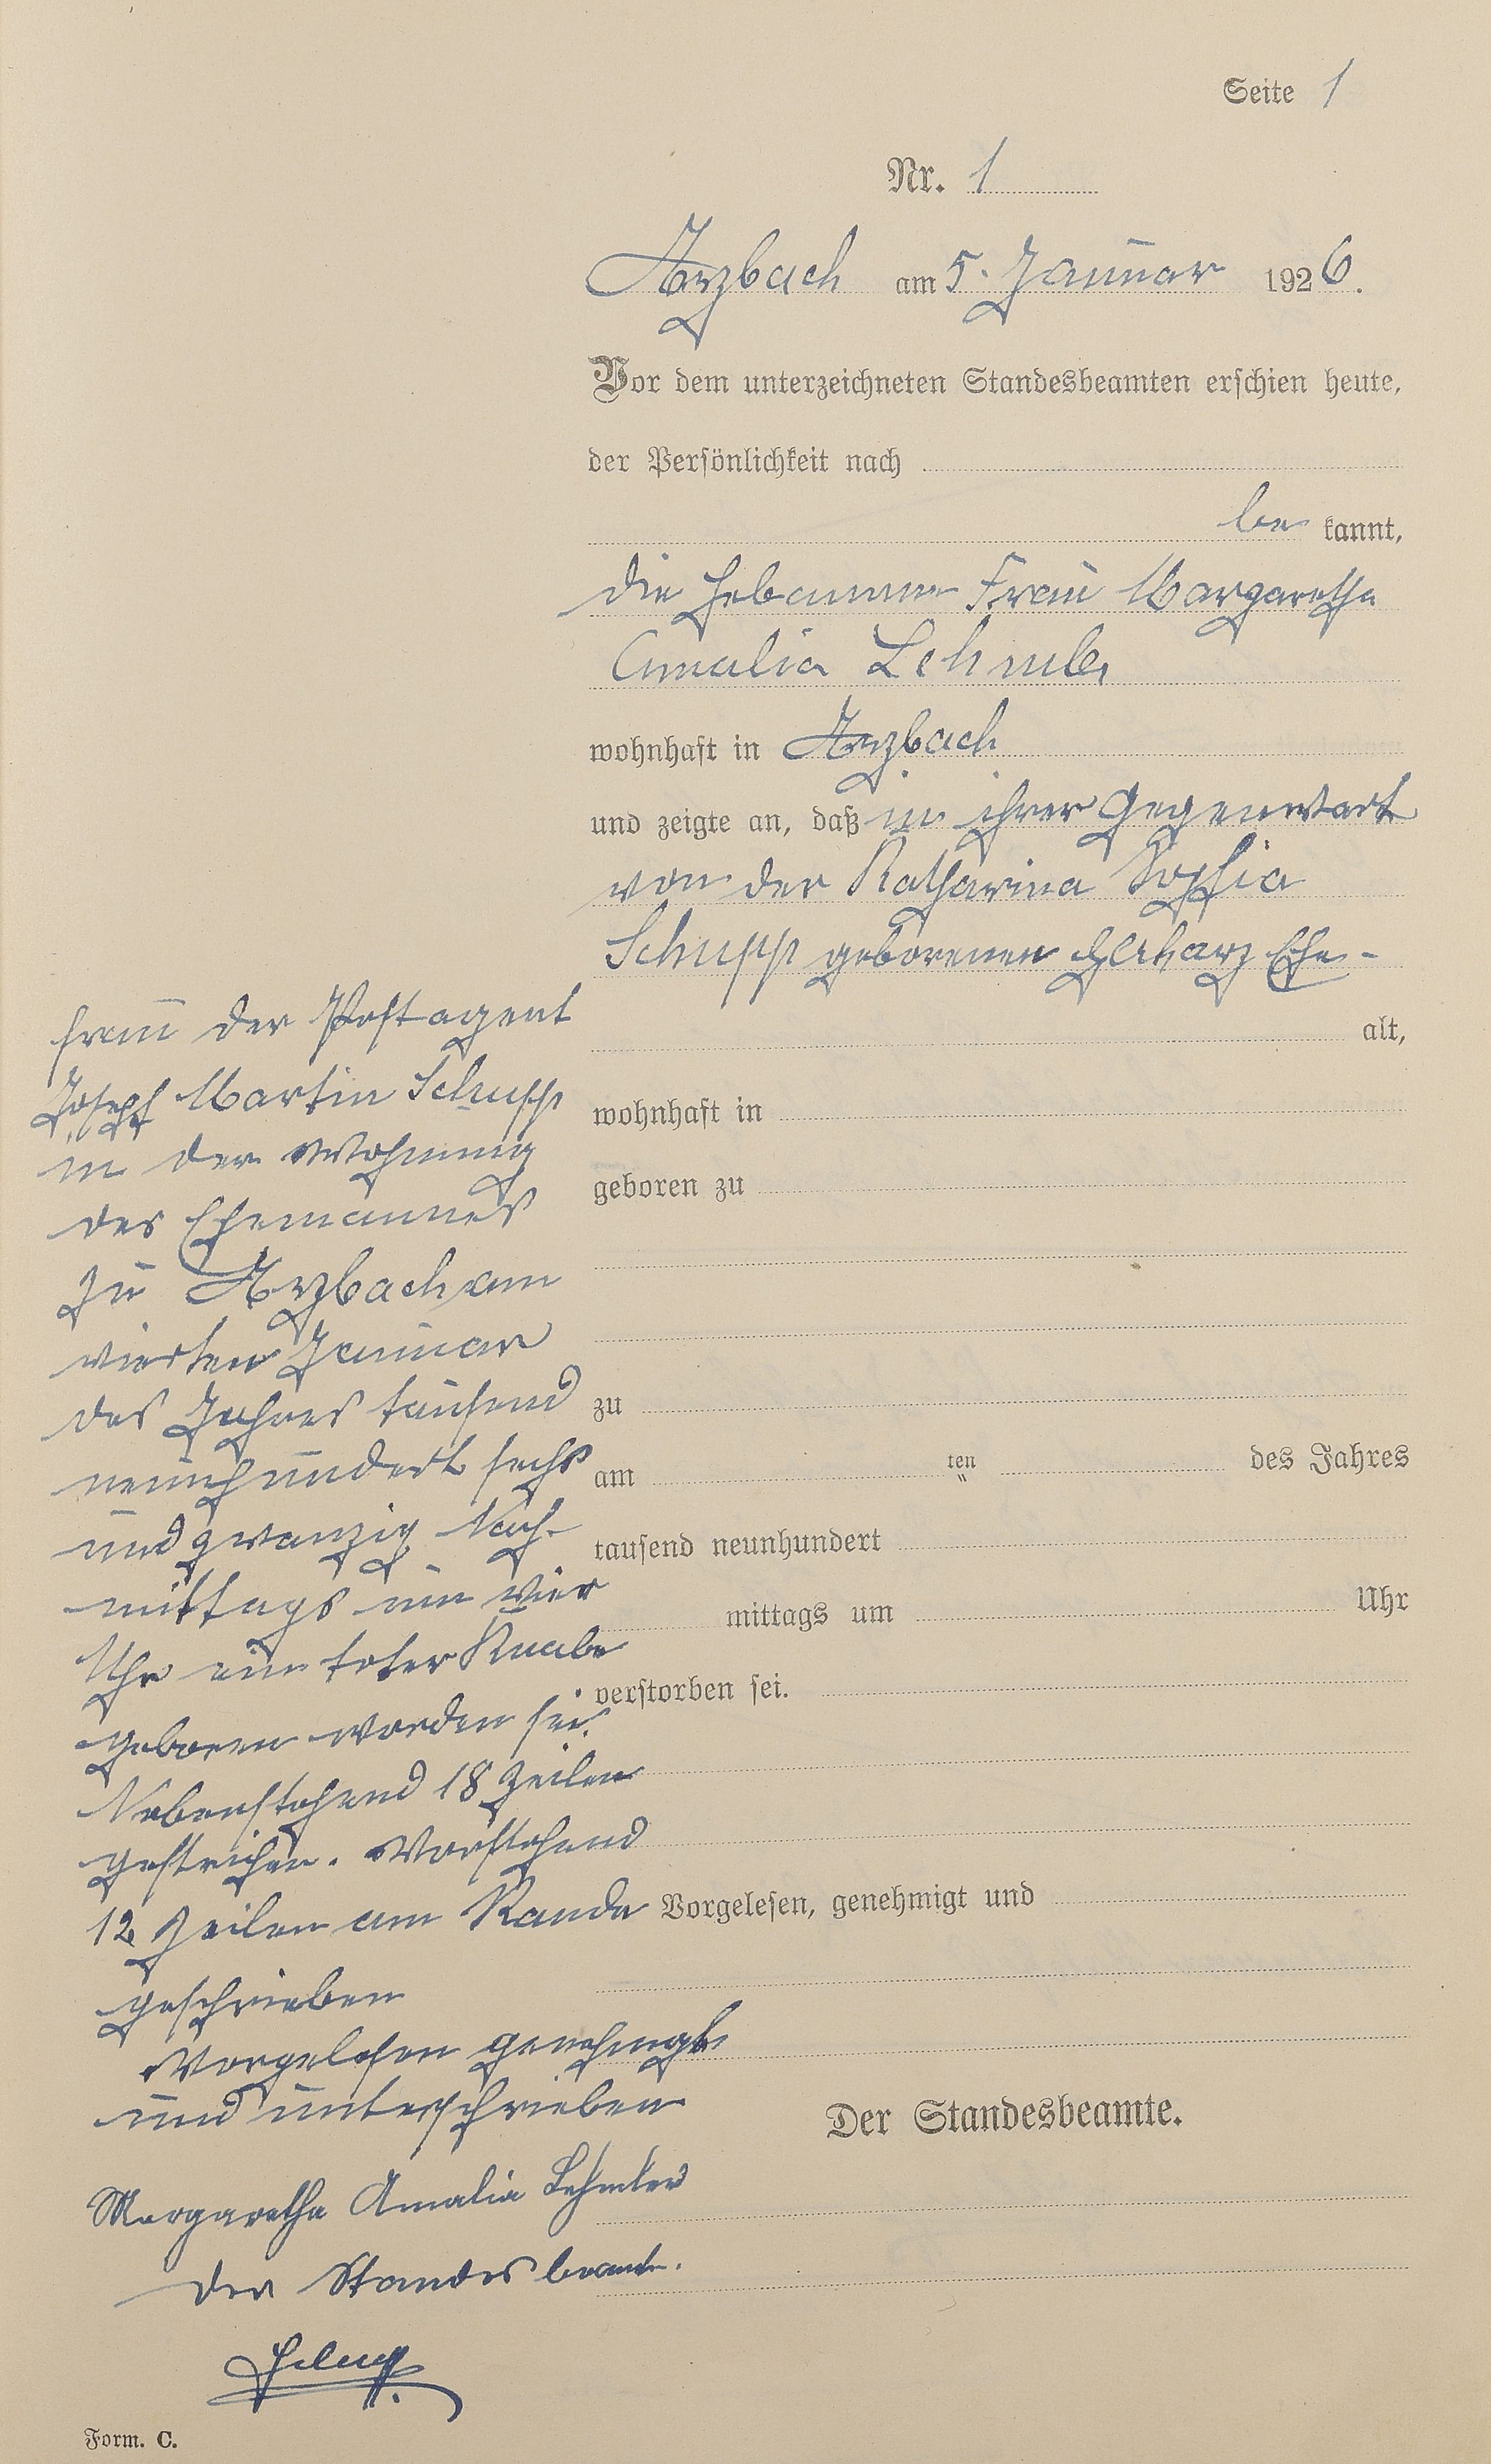 Seite 1
Nr. 1
Arzbach am 5. Januar 1926.
Vor dem unterzeichneten Standesbeamten erschien heute,
der Persönlichkeit nach
be kannt,
die Hebamme Frau Margaretha
Amalia Lehmler
wohnhaft in Arzbach
und zeigte an, daß in ihrer Gegenwart
von der Katharina Sophia
Schupp geborenen Ehe-
frau der Postagent
Joseph Martin Schupp
in der Wohnung
des Ehemannes
zu Arzbach am
vierten Januar
des Jahres tausend
neunhundert sechs
und zwanzig Nach-
mittags um vier
Uhr ein toter Knabe
geboren worden sei.
Nebenstehend 18 Zeilen
gestrichen. Vorstehend
12 Zeilen am Rande
geschrieben
Vorgelesen genehmigt
und unterschrieben
Margaretha Amalia Lehmler
Der Standesbeamte.
alt,
wohnhaft in
geboren zu
zu
am ten des Jahres
tausend neunhundert
mittags um Uhr
verstorben sei.
Vorgelesen, genehmigt und
Der Standesbeamte.
Form. C.